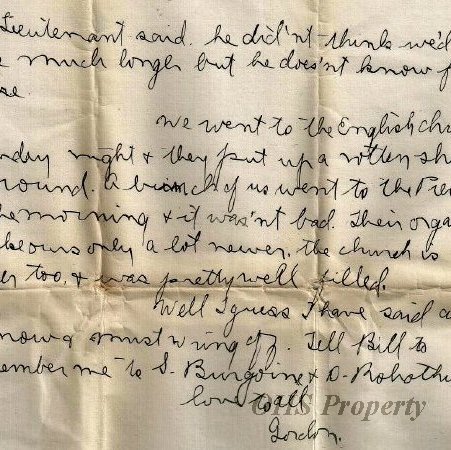 Lieutenant said. he did'nt think we'd
much longer but he does'nt know f
se.
We went to the English Chu
nday night & they put up a rotten sh
round. A bunch of us went to the Pre
he morning & it was'nt bad. Their orga
ke ours only a lot newer. the church is
er too, & was pretty well filled.
Well I guess I have said a
now & must wring off. Tell Bill to
ember me to S. Burgoine & D.
love to all
Gordon.
GHS Property